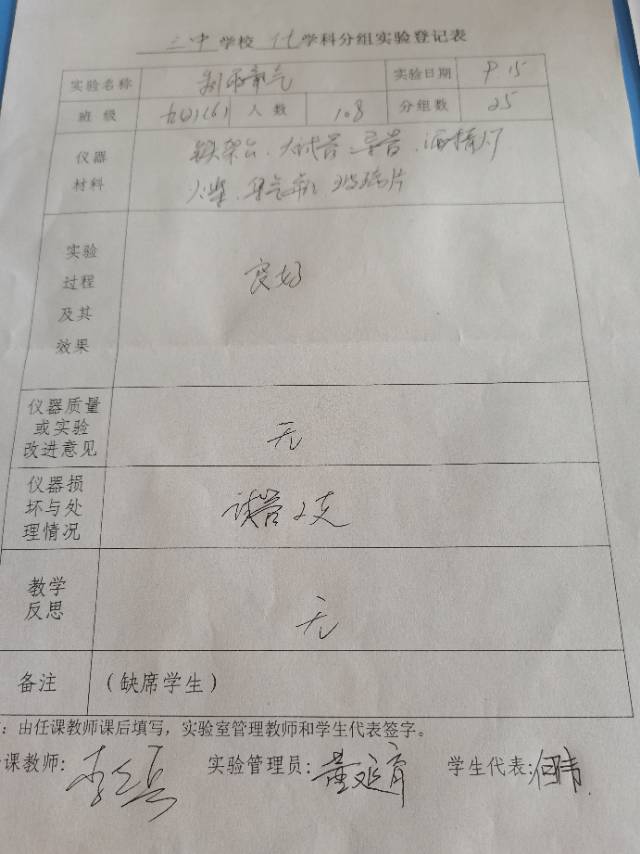 三中 学校 化 学科分组实验登记表
实验名称 制取氧气 实验日期 9.15
班级 九(2)(6) 人数 108 分组数 25
仪器材料 铁架台、大试管、导管、酒精灯
火柴、集气瓶、玻璃片
实验过程及其效果 良好
仪器质量或实验改进意见 无
仪器损坏与处理情况 试管2支
教学反思 无
备注 (缺席学生)
:由任课教师课后填写,实验室管理教师和学生代表签字。
课教师: 实验管理员: 学生代表: